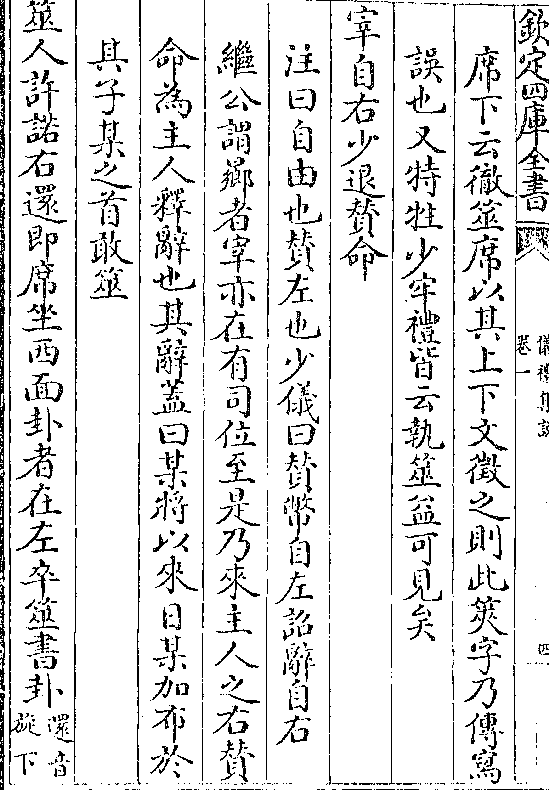 欽定四庫全書
儀禮集說
卷一
四
席下云徹筮席以其上下文徵之則此筴字乃傳寫
誤也又特牲少牢禮皆云執筮益可見矣
宰自右少退賛命
注曰自由也賛左也少儀曰賛幣自左詔辭自右
繼公謂郷者宰亦在有司位至是乃來主人之右賛
命為主人釋辭也其辭蓋曰某將以來日某加布於
其子某之首敢筮
筮人許諾右還即席坐西面卦者在左卒筮書卦還音
旋下